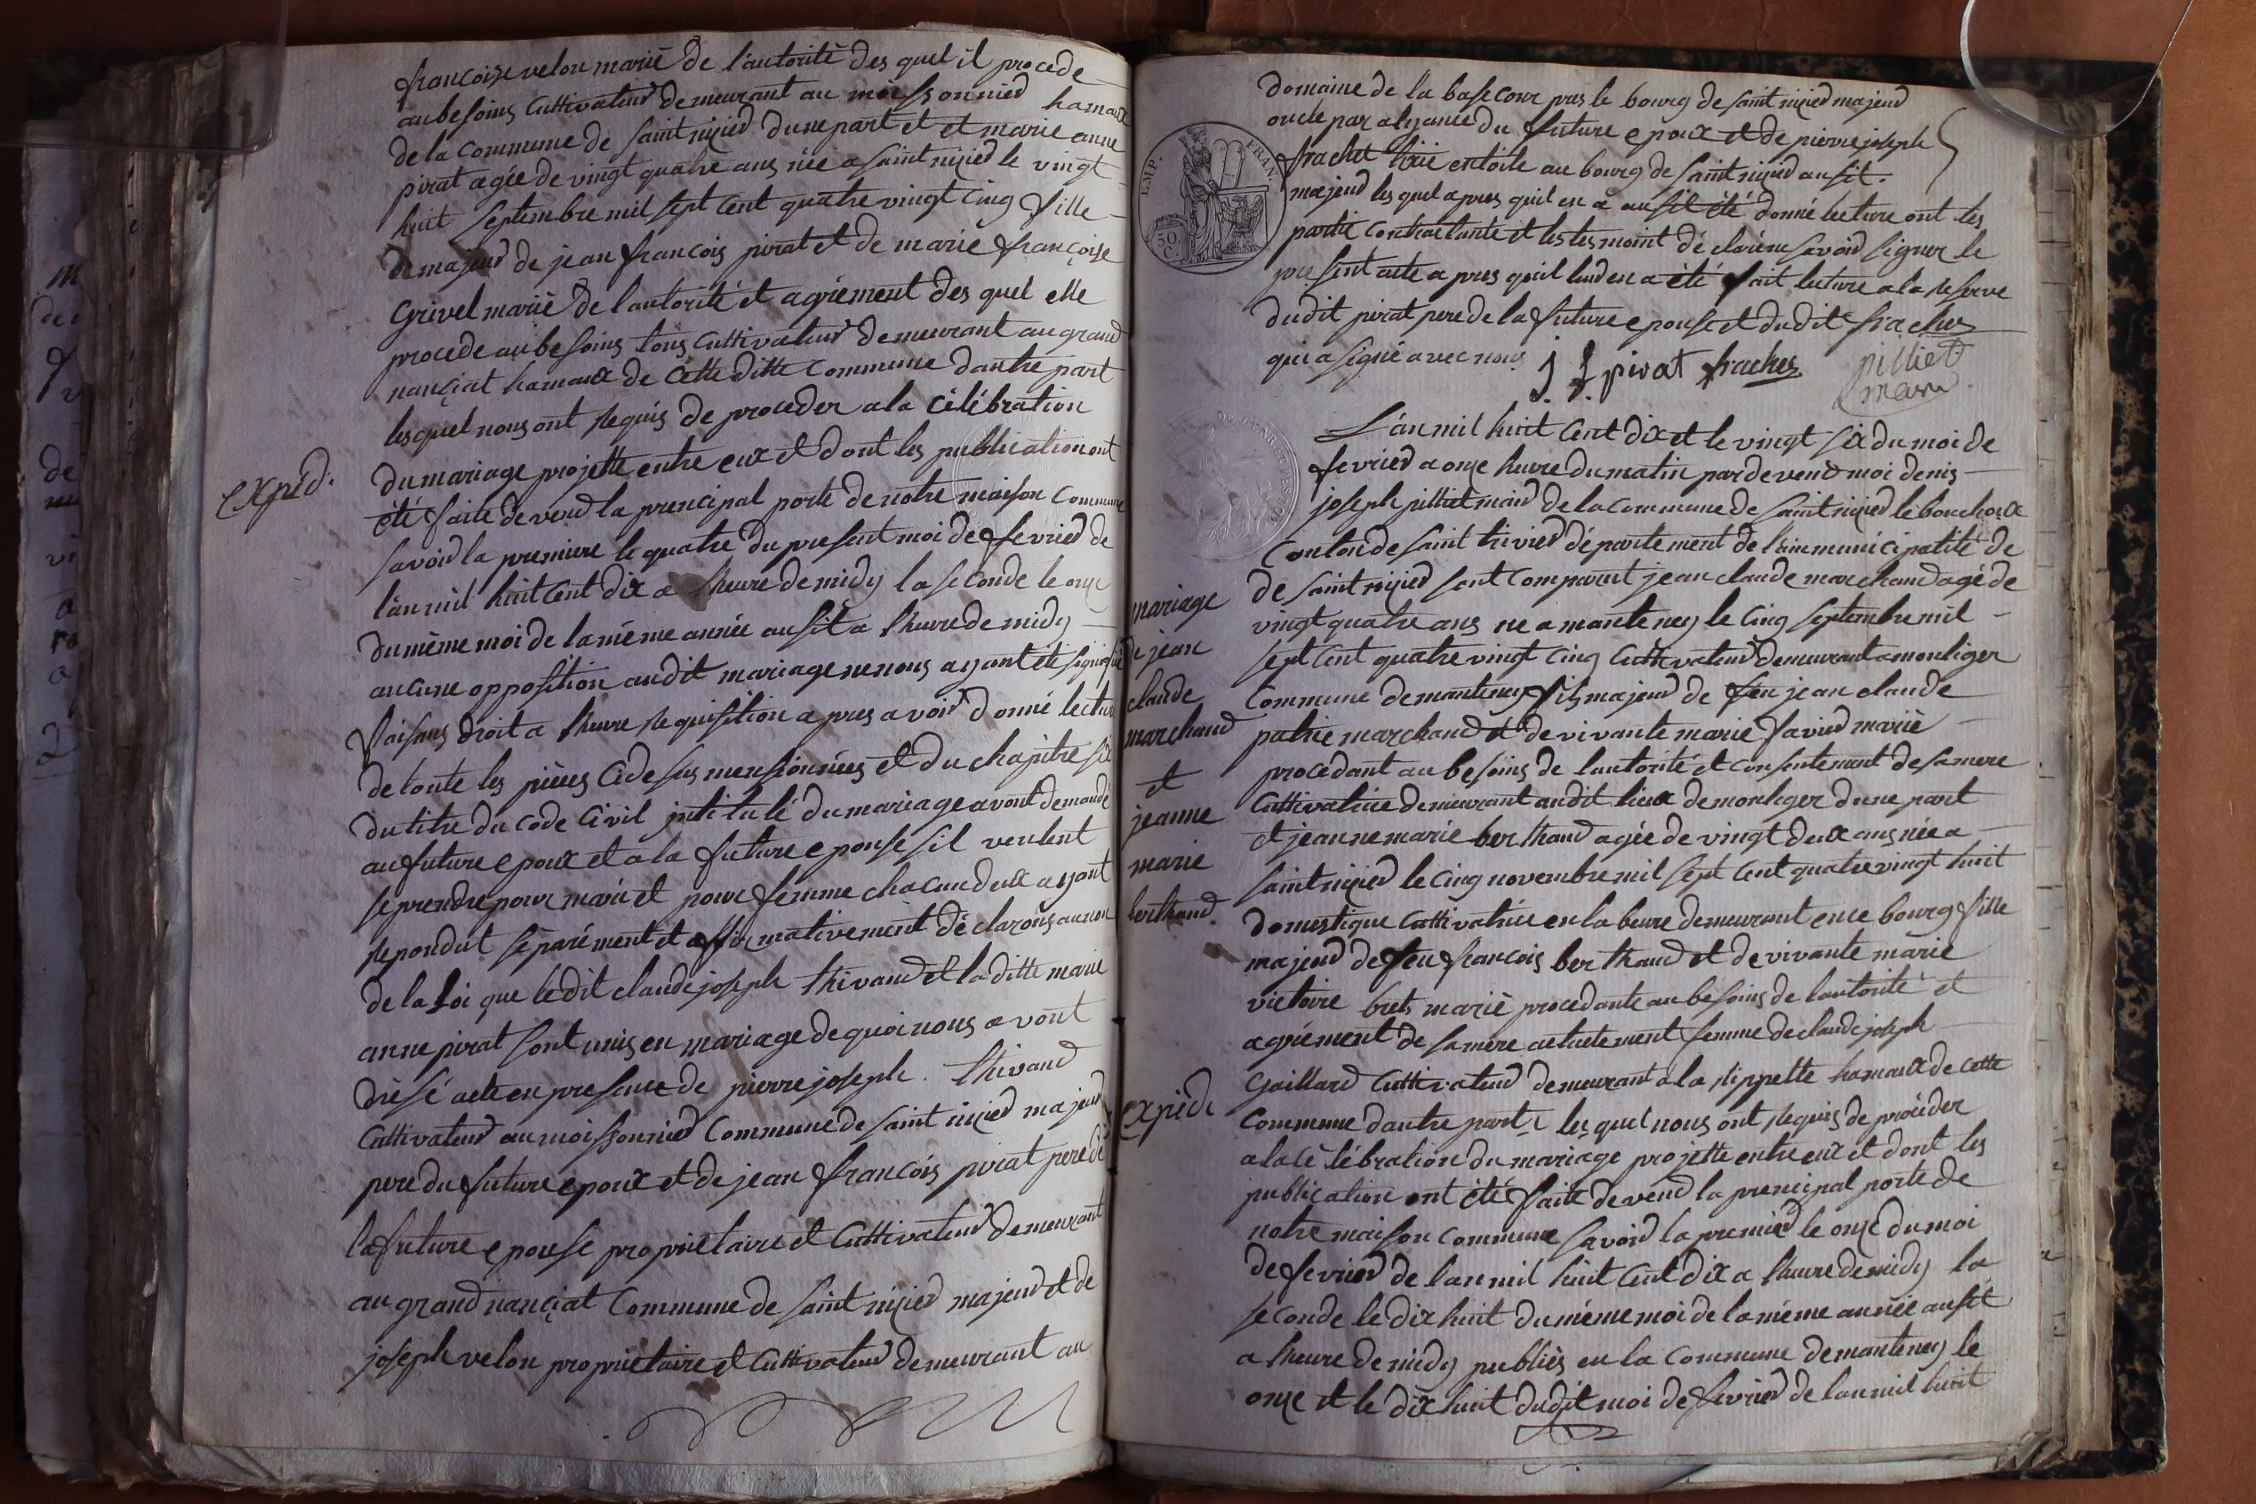 françoise velon marié de l'autorité des quel il procede
aubesoins Cultivateur demeurant au moissonnied hamaux
de la commune de saint nizied dune part et et marie anne
pirat agée de vingt quatre ans née a saint nizied le vingt
huit septembre mil sept cent quatre vingt cinq fille
majeur de jean françois pirat et de marie françoise
Grivel marié de l'autorité et agrément des quel elle
procede aubesoins tous cultivateur demeurant au grand
nançiat hamaux de cette ditte commune dautre part
lesquel nous ont requis de proceder a la célébration
expéd.
du mariage projetté entre eux et dont les publication ont
été faite devend la prencipal porte de notre maison commune
savoir la premiere le quatre du present moi de fevried de
l'an mil huit cent dix a lheure de midy la seconde le onze
du même moi de la même année ausit a lheure de midy
aucune opposition audit mariage ne nous ayant été signifié
faisans droit a lheure requisition apres avoir donné lecture
de toute les pièces cidesus mensionnées et du chapitre six
du titre du code civil intitulé du mariage avont demandé
au future epoux et a la future epouse sil veulent
se prendre pour mari et pour femme chacun deux ayant
repondut séparément et affirmativement déclarons au nom
de la Loi que ledit claude joseph thivand et la ditte marie
anne pirat sont unis en mariage de quoi nous avont
drésé acte en presence de pierre joseph thivand
Cultivateur au moissonnied commune de saint nizied majeur
pere du future epoux et de jean françois pirat pere de
la future epouse proprietaire et Cultivateur demeurant
au grand nançiat commune de saint nizied majeur et de
joseph velon proprietaire et cultivateur demeurant au
domaine de la base cour pres le bourg de saint nizied majeur
oncle par alyance du future epoux et de pierre joseph
frachet en toile au bourg de saint nizied ausit
majeur les quel apres quil en a ausit été donné lecture ont les
partie contractante et les tesmoint déclaré ne savoir signer le
present acte apres quil leur en a été fait lecture a la reserve
dudit pirat pere de la future epouse et dudit frachez
qui a signé avec nous
j. f. pirat frachez pilliet
maire
EMP. FRAN.
50 C.
L'an mil huit cent dix et le vingt six du moi de
fevried a onze heure du matin par devend moi denis
joseph pilliet maire de la commune de saint nizied le bouchoux
Conton de saint trivied département de lain municipalité de
de saint nizied sont comparut jean claude marchand agé de
vingt quatre ans né a manteney le cinq septembre mil
sept cent quatre vingt cinq cultivateur demeurant a monliger
commune de manteney fils majeur de feu jean claude
patric marchand et de vivante marie favier marié
procedant au besoins de lautorité et consentement de sa mere
Cultivatrice demeurant audit lieux de monliger dune part
et jeanne marie berthaud agée de vingt deux ans née a
saint nizied le cinq novembre mil sept cent quatre vingt huit
domestique cultivatrice en labeure demeurant en ce bourg fille
majeur de feu françois berthaud et de vivante marie
victoire bret marié procedante au besoins de lautorité et
agrément de sa mere actuelement femme de claude joseph
Gaillard Cultivateur demeurant a la rippette hamaux de cette
commune dautre part les quel nous ont requis de proceder
a la célébration du mariage projetté entre eux et dont les
publication ont été faite devend la prencipal porte de
notre maison commune savoir la premier le onze du moi
de fevried de lan mil huit cent dix a lheure de midy la
seconde le dix huit du même moi de la même année ausit
a lheure de midy publiés en la commune de manteney le
onze et le dix huit dudit moi de fevried de lan mil huit
mariage
de jean
claude
marchand
et
jeanne
marie
berthaud
expéd.